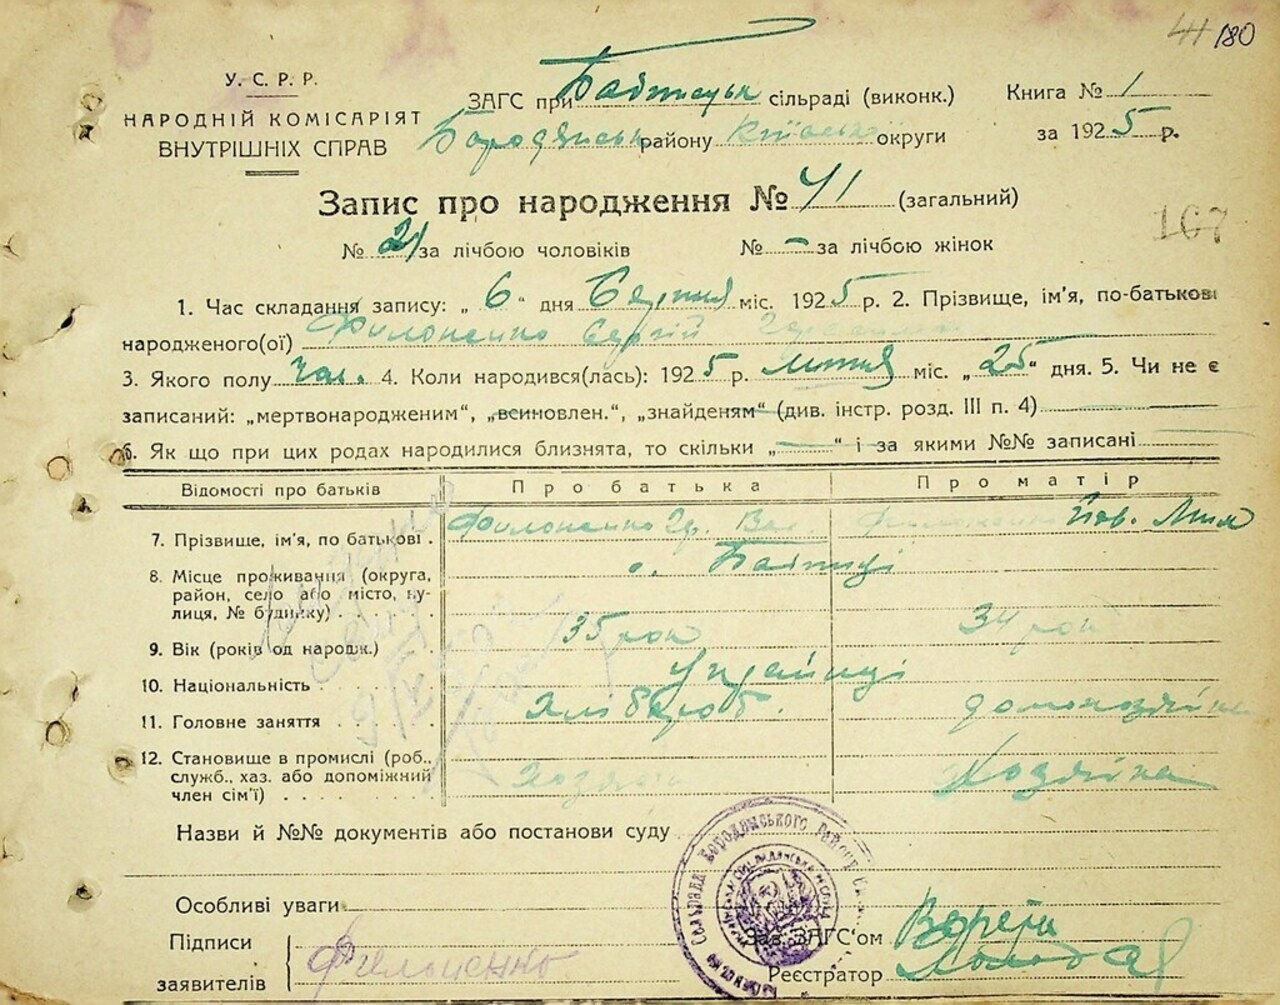 41 180
У. С. Р. Р.
НАРОДНІЙ КОМІСАРІЯТ
ВНУТРІШНІХ СПРАВ
ЗАГС при сільраді (виконк.)
Бородянськ району Київськ округи
Книга № 1
за 1925 р.
Запис про народження № 41 (загальний)
№ 21 за лічбою чоловіків № – за лічбою жінок
167
1. Час складання запису: „ 6 “ дня Серпня міс. 1925 р. 2. Прізвище, ім'я, по-батькові
народженого(ої) Филоненко Сергій
3. Якого полу Чол. 4. Коли народився(лась): 1925 р. Липня міс. „ 25 “ дня. 5. Чи не є
записаний: „мертвонародженим“, „всиновлен.“, „знайденям“ (див. інстр. розд. III п. 4)
6. Як що при цих родах народилися близнята, то скільки „ — “ і за якими №№ записані
Відомості про батьків Про батька Про матір
7. Прізвище, ім'я, по батькові . Филоненко Гр. Вас. Филоненко
8. Місце проживання (округа,
район, село або місто, ву-
лиця, № будинку) . . . .
9. Вік (років од народж.) 35 рок 34 рок
10. Національність Українці
11. Головне заняття . . . . . Хліборob. домохазяйка
12. Становище в промислі (роб.,
служб., хаз. або допоміжний
член сім'ї) . . . . . . . . Хозяїн Хозяйка
Назви й №№ документів або постанови суду
Особливі уваги
Підписи
заявителів Филоненко
Зав. ЗАГС'ом
Реєстратор